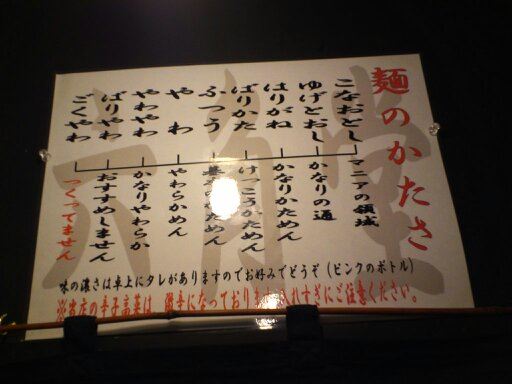 麺のかたさ
こなおとし
ゆげとおし
はりがね
ばりかた
ふつう
やわ
やわやわ
ばりやわ
ごくやわ
マニアの領域
かなりの通
かなりかため
けっこうかためん
ためん
やわらかめん
かなりやわらか
おすすめしません
つくってません
味の濃さは卓上にタレがありますのでお好みでどうぞ(ピンクのボトル)
※当店の辛子高菜は、激辛になっております。入れすぎにご注意ください。
六角堂